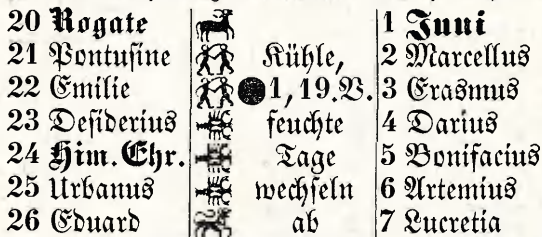 20 Rogate 1 Juni
21 Pontusine Kühle, 2 Marcellus
22 Emilie 1, 19. V. 3 Erasmus
23 Desiderius feuchte 4 Darius
24 Him. Chr. Tage 5 Bonifacius
25 Urbanus wechseln 6 Artemius
26 Eduard ab 7 Lucretia